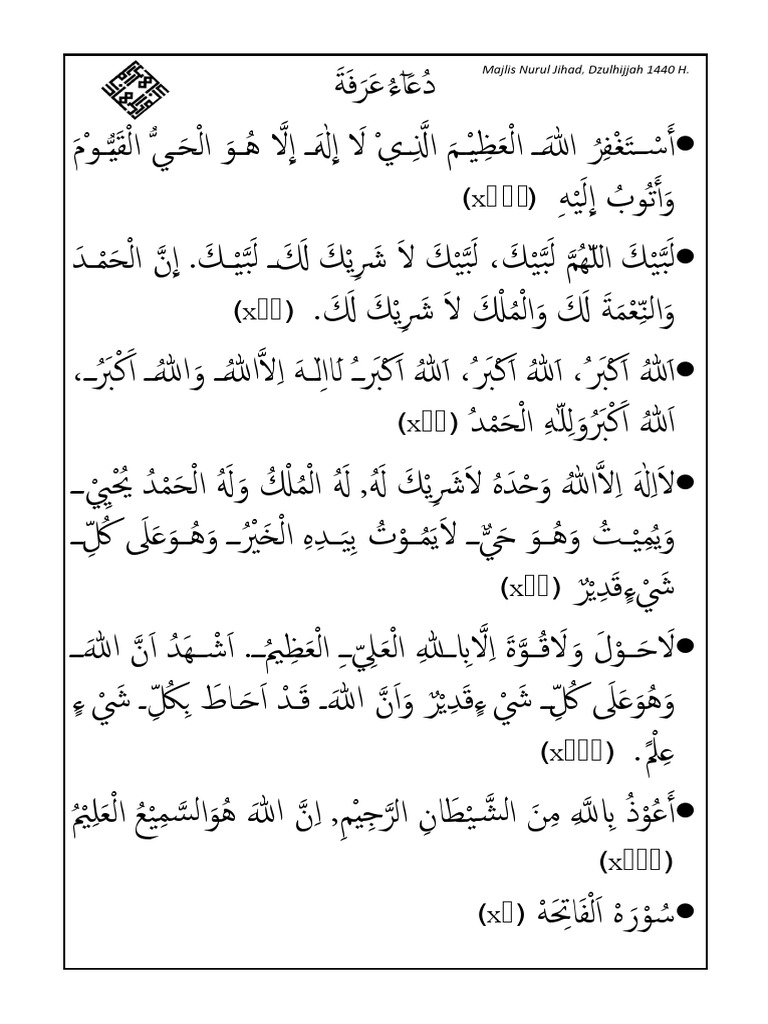 Majlis Nurul Jihad, Dzulhijjah 1440 H.
دُعَآءُ عَرَفَةَ
●أَسْـتَغْفِرُ اللهَ الْعَظِيْـمَ الَّـذِيْ لَا إِلٰهَ إِلَّا هُـوَ الْحَـيُّ الْقَيُّـوْمَ
وَأَتُوبُ إِلَيْهِ (x▯▯▯)
●لَبَّيْكَ اللّٰهُمَّ لَبَّيْكَ، لَبَّيْكَ لاَ شَرِيْكَ لَكَ لَبَّيْـكَ. إِنَّ الْحَمْـدَ
وَالنِّعْمَةَ لَكَ وَالْمُلْكَ لاَ شَرِيْكَ لَكَ. (x▯▯)
●اَللهُ اَكْبَرُ، اَللهُ اَكْبَرُ، اَللهُ اَكْبَرُ لَااِلٰـهَ اِلاَّاللهُ وَاللهُ اَكْبَرُ،
اَللهُ اَكْبَرُوَلِلّٰهِ الْحَمْدُ (x▯▯)
●لاَاِلٰهَ اِلاَّاللهُ وَحْدَهُ لاَشَرِيْكَ لَهُ, لَهُ الْمُلْكُ وَلَهُ الْحَمْدُ يُحْيِيْ
وَيُمِيْـتُ وَهُـوَ حَيٌّ لاَيَمُـوْتُ بِيَـدِهِ الْخَيْرُ وَهُـوَعَلَى كُلِّ
شَيْءٍقَدِيْرٌ (x▯▯)
●لَاحَـوْلَ وَلَاقُـوَّةَ اِلَّابِـاللهِ الْعَلِيِّ الْعَظِيمُ. اَشْـهَدُ اَنَّ اللهَ
وَهُوَعَلَى كُلِّ شَيْ ءٍقَدِيْرٌ وَاَنَّ اللهَ قَـدْ اَحَـاطَ بِكُـلِّ شَيْ ءٍ
عِلْمً. (x▯▯▯)
●أَعُوْذُ بِاللَّهِ مِنَ الشَّـيْطَانِ الرَّجِيْمِ, اِنَّ اللهَ هُوَالسَّمِيْعُ الْعَلِيْمُ
(x▯▯▯)
●سُوْرَهْ اَلْفَاتِحَهْ (x▯)